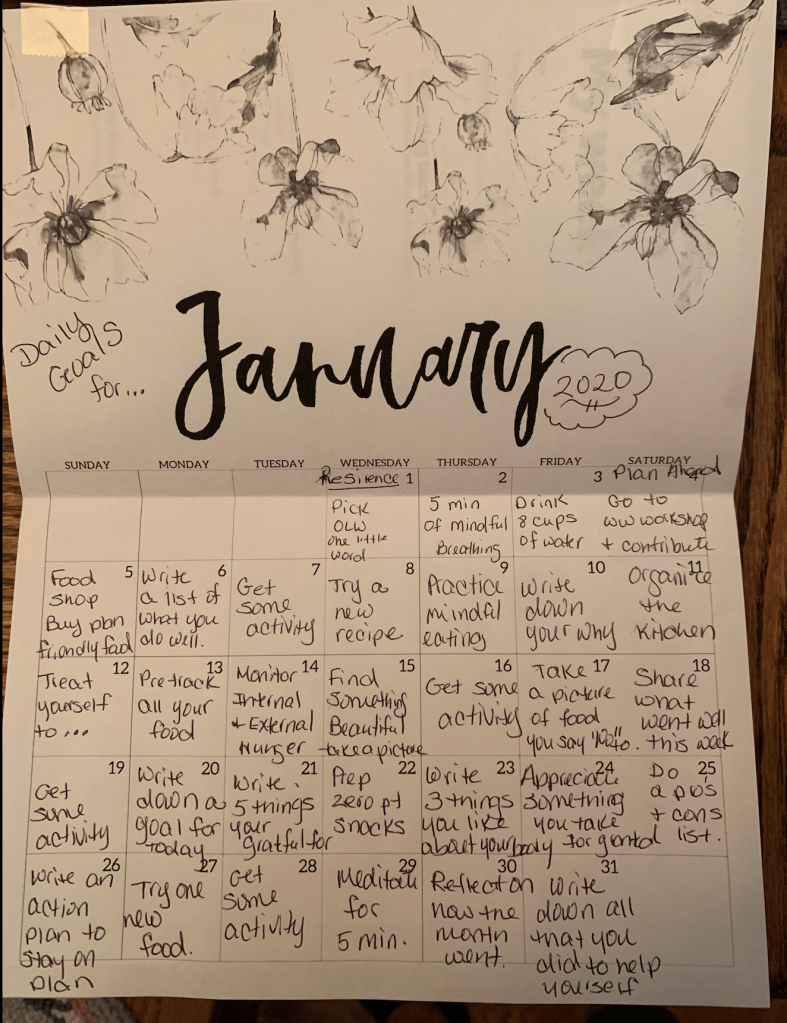 Daily
Goals
for...
January
2020
SUNDAY MONDAY TUESDAY WEDNESDAY THURSDAY FRIDAY SATURDAY
Resilence 1
Pick
OLW
one little
word
2
5 min
of mindful
Breathing
3
Drink
8 cups
of water
Plan Ahead
4
Go to
WW workshop
+ contribute
5
Food
Shop
Buy plan
friendly food
6
Write
a list of
what you
do well.
7
Get
some
activity
8
Try a
new
recipe
9
Practice
mindful
eating
10
Write
down
your why
11
Organize
the
Kitchen
12
Treat
yourself
to ...
13
Pretrack
all your
food
14
Monitor
Internal
+ External
Hunger
15
Find
Something
Beautiful
take a picture
16
Get some
activity
17
Take
a picture
of food
you say "No" to.
18
Share
what
went well
this week
19
Get
some
activity
20
Write
down a
goal for
today
21
Write
5 things
your
gratful for
22
Prep
zero pt
snacks
23
Write
3 things
you like
about your body
24
Appreciate
something
you take
for grantd
25
Do
a pros
+ cons
list.
26
Write an
action
plan to
Stay on
plan
27
Try one
new
food.
28
Get
some
activity
29
Meditate
for
5 min.
30
Reflect on
how the
month
went.
31
Write
down all
that you
did to help
yourself